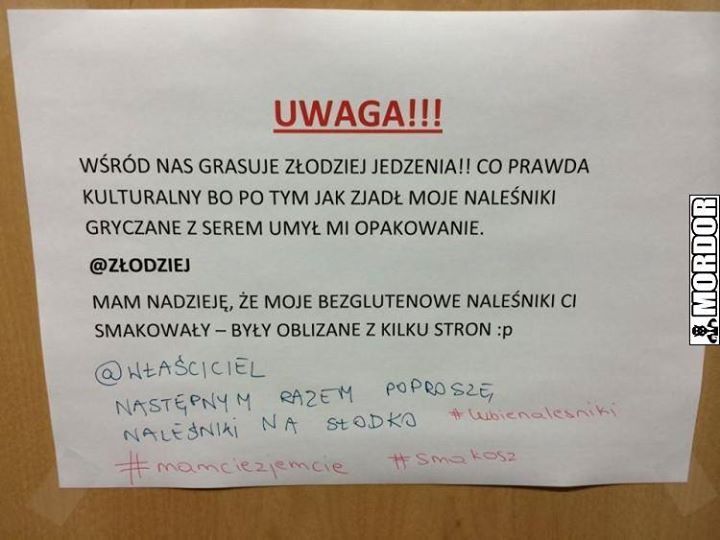 UWAGA!!!
WŚRÓD NAS GRASUJE ZŁODZIEJ JEDZENIA!! CO PRAWDA
KULTURALNY BO PO TYM JAK ZJADŁ MOJE NALEŚNIKI
GRYCZANE Z SEREM UMYŁ MI OPAKOWANIE.
@ZŁODZIEJ
MAM NADZIEJĘ, ŻE MOJE BEZGLUTENOWE NALEŚNIKI CI
SMAKOWAŁY – BYŁY OBLIZANE Z KILKU STRON :p
@WŁAŚCICIEL
NASTĘPNYM RAZEM POPROSZĘ
NALEŚNIKI NA SŁODKO #lubienalesniki
#mamciezjemcie #smakosz
MORDOR